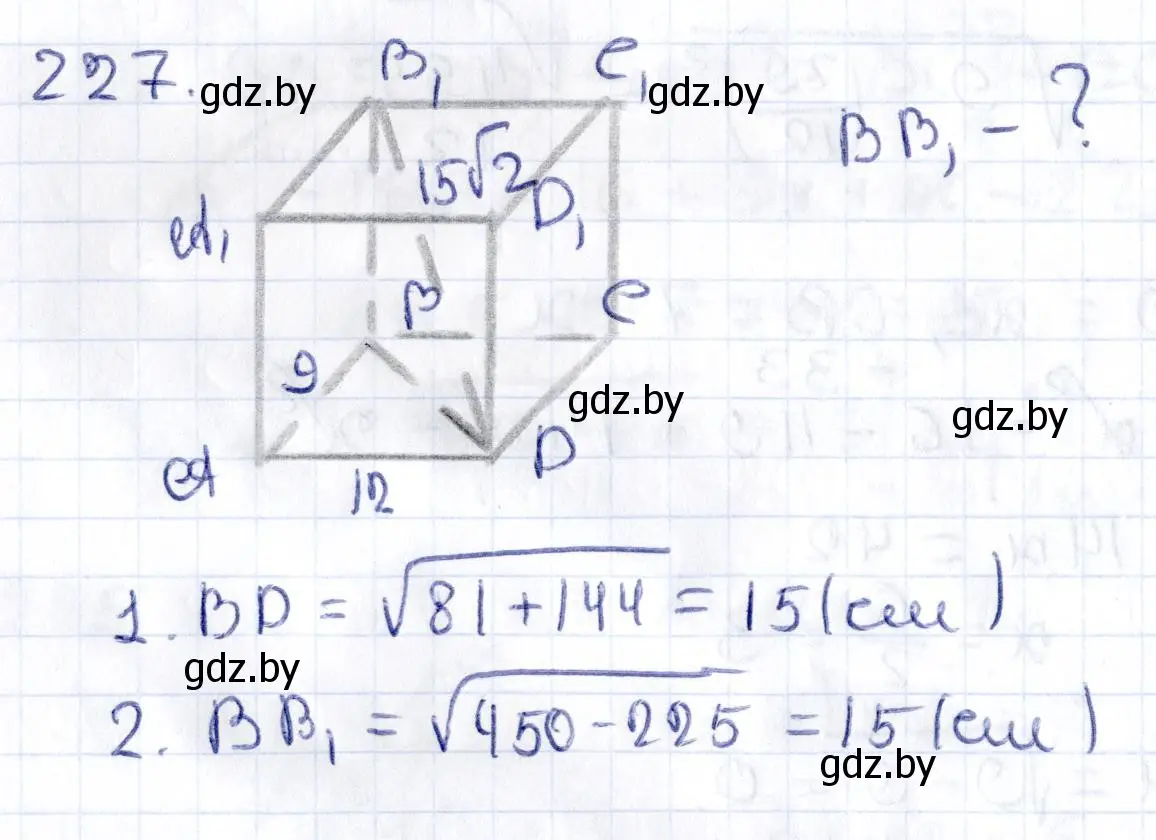 227.
B₁ C₁
gdz.by gdz.by
BB₁ - ?
15√2
A₁ D₁
B C
9
gdz.by
gdz.by
A D
12
1. BD = √81+144 = 15(см)
gdz.by
2. BB₁ = √450-225 = 15(см)
gdz.by